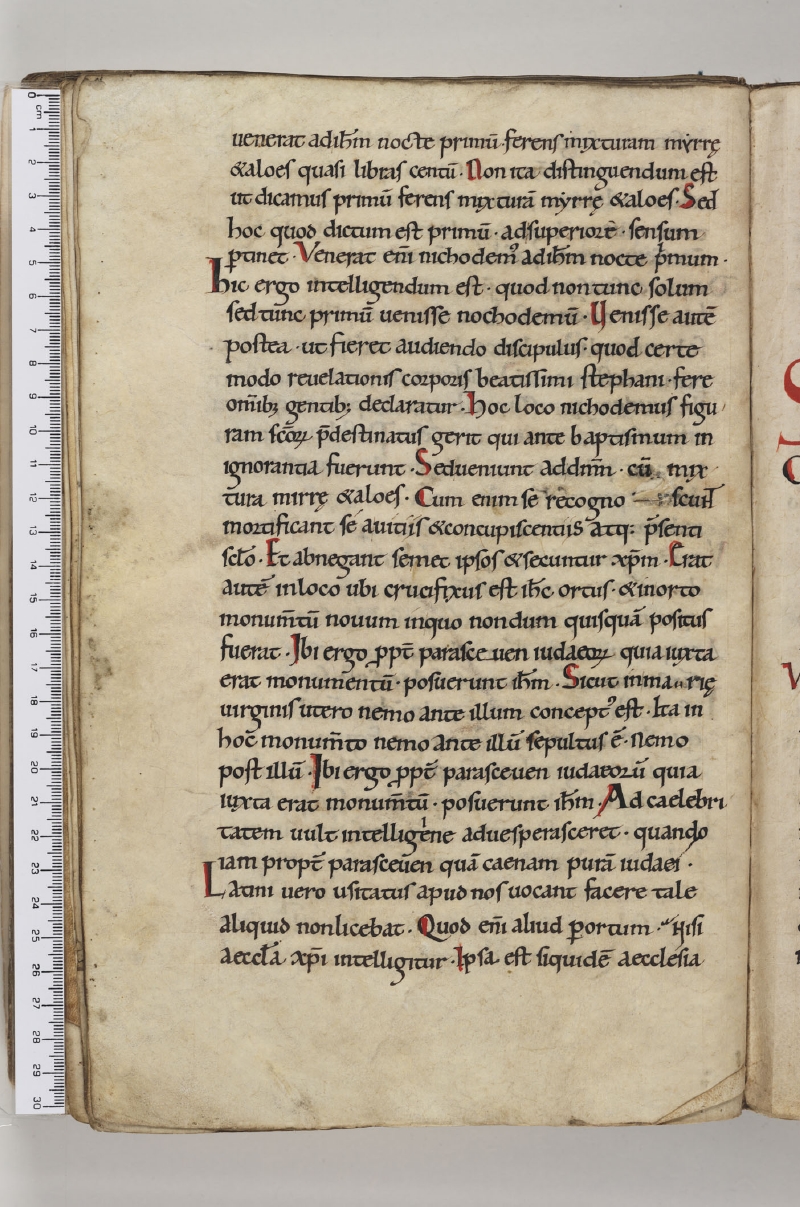 uenerat adih̄m nocte primū· ferens mixturam myrrę
&aloes quasi libras centū· Non ita distinguendum est
ut dicamus primū ferens mixturā myrrę &aloes· Sed
hoc quod dictum est primū· adsuperiorē· sensum
ꝑtinet· Venerat eni̅ nichodem᾿ adih̄m nocte p̄mum·
hic ergo intelligendum est· quod non tunc solum
sed tūnc primū uenisse nochodemū· Uenisse autē
postea· ut fieret audiendo discipulus· quod certe
modo reuelationis corporis beatissimi stephani· fere
om̄ib; gentib; declaratur· hoc loco nichodemus figu
ram sc̄oꝝ p̄destinatus gerit qui ante baptismum in
ignorantia fuerunt· Sed ueniunt addnm̄· cū mix
tura mirrę &aloes· Cum enim se recogno scuN̄
mortificant se auitiis &concupiscentiis atq: p̄senti
sc̄lo· Et abnegant semet ipsos &secuntur xp̄m· Erat
autē inloco ubi crucifixus est ih̄c ortus· &inorto
monum̄tū nouum inquo nondum quisquā positus
fuerat· Ibi ergo ꝓpt̄ parasceuen iudaeoꝝ quia iuxta
erat monumentū· posuerunt ih̄m· Sicut inmarię
uirginis utero nemo ante illum concept᾿ est· Ita in
hoc monum̄to nemo ante illū sepultus ē· Nemo
post illū· Ibi ergo ꝓpt̄ parasceuen iudaeorū quia
iuxta erat monum̄tū· posuerunt ih̄m· Ad caelebri
tatem uult intelligene aduesperasceret· quando
iam propt̄ parasceuen quā caenam purā iudaei·
Latini uero usitatus apud nos uocant facere tale
aliquid nonlicebat· Quod eni̅ aliud ꝑortum· Nisi
aeccl̄a xp̄i intelligitur· Ipsa est siquidē aecclesia